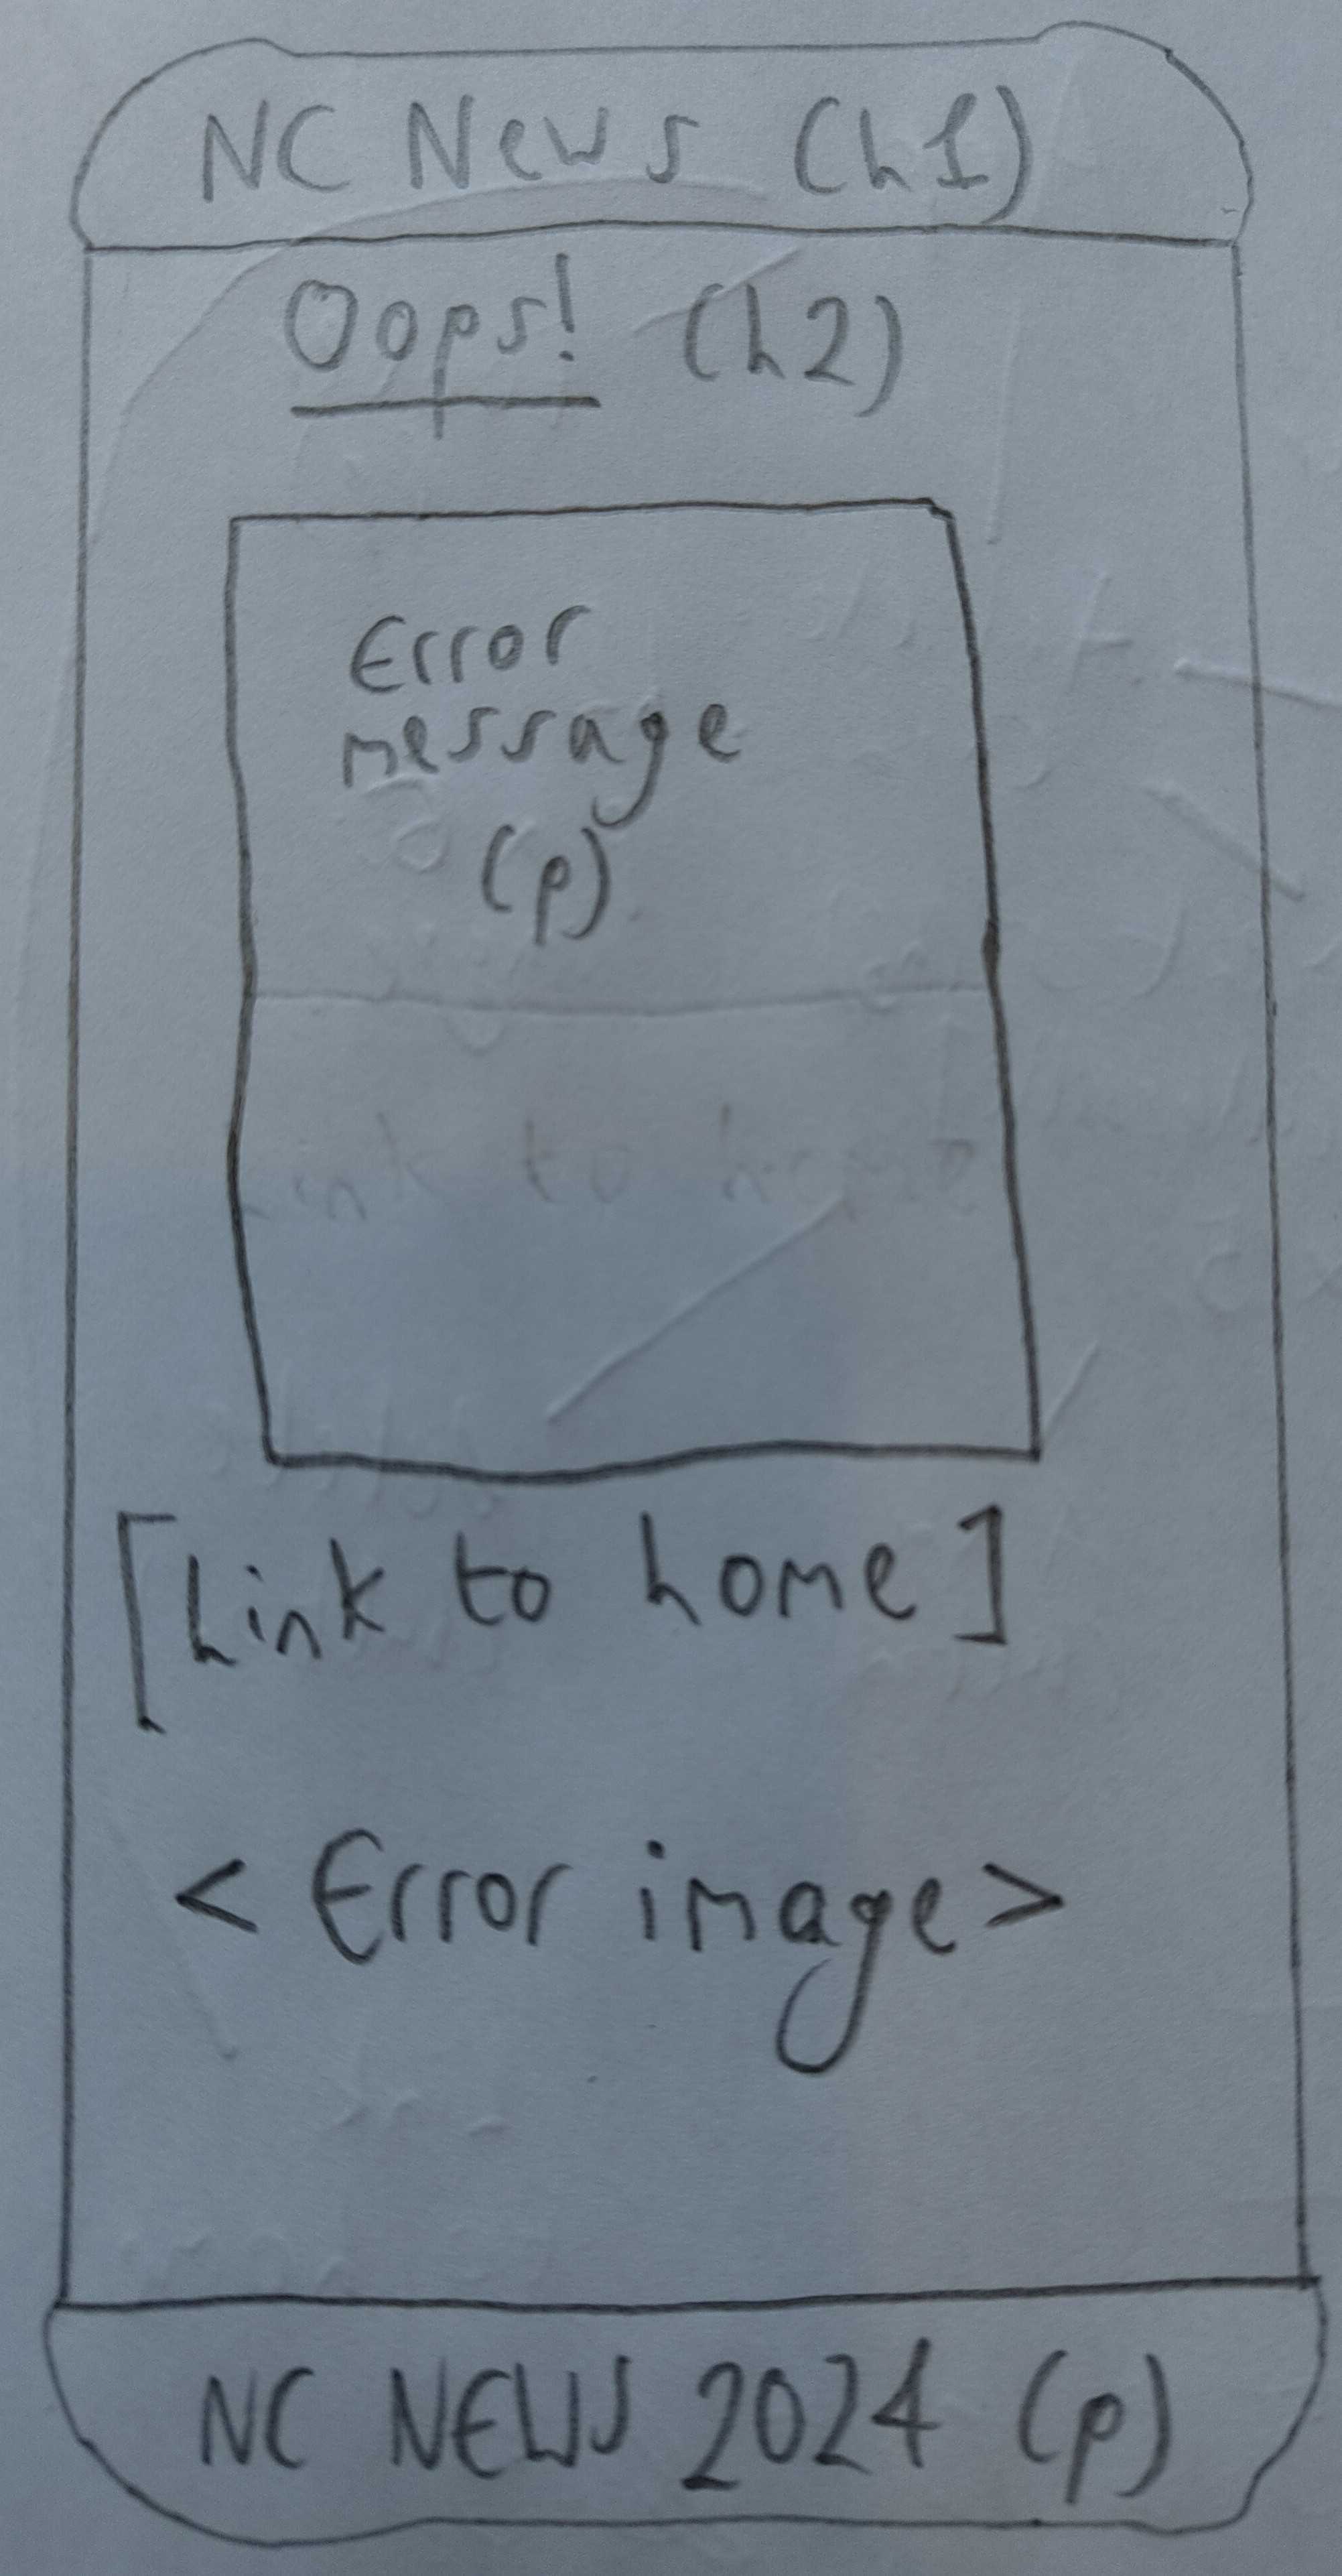 NC News (h1)
Oops! (h2)
Error
message
(p)
Link to home
[Link to home]
<Error image>
NC NEWS 2024 (p)